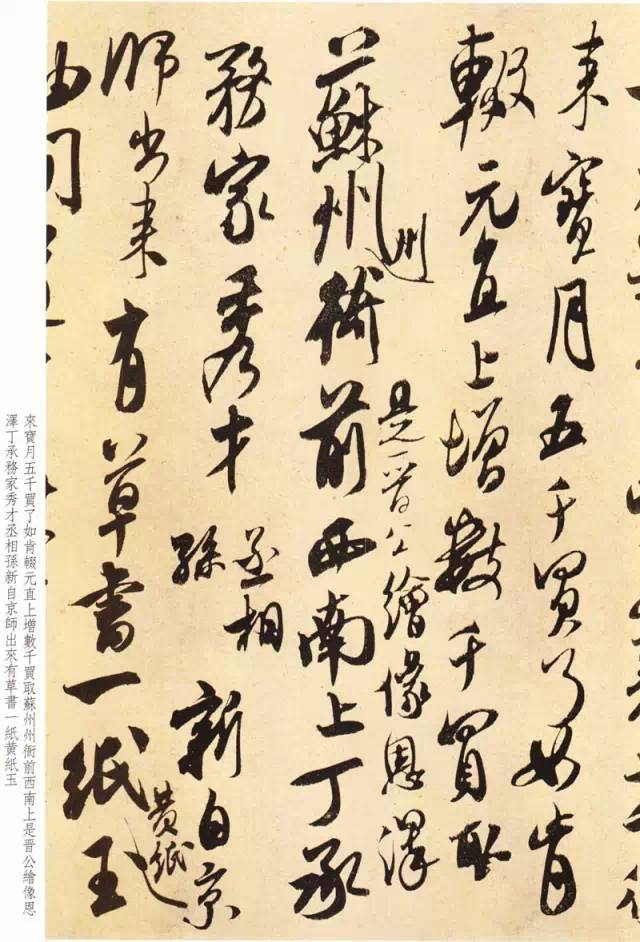 来寶月五千買了如肯
輟元直上增數千買取
州
是晉公繪像恩澤
蘇州衙前西南上丁承
務家秀才
丞相
孫
新自京
師出来有草書一紙玉
黃紙
來寶月五千買了如肯輟元直上增數千買取蘇州州衙前西南上是晉公繪像恩
澤丁承務家秀才丞相孫新自京師出來有草書一紙黃紙玉